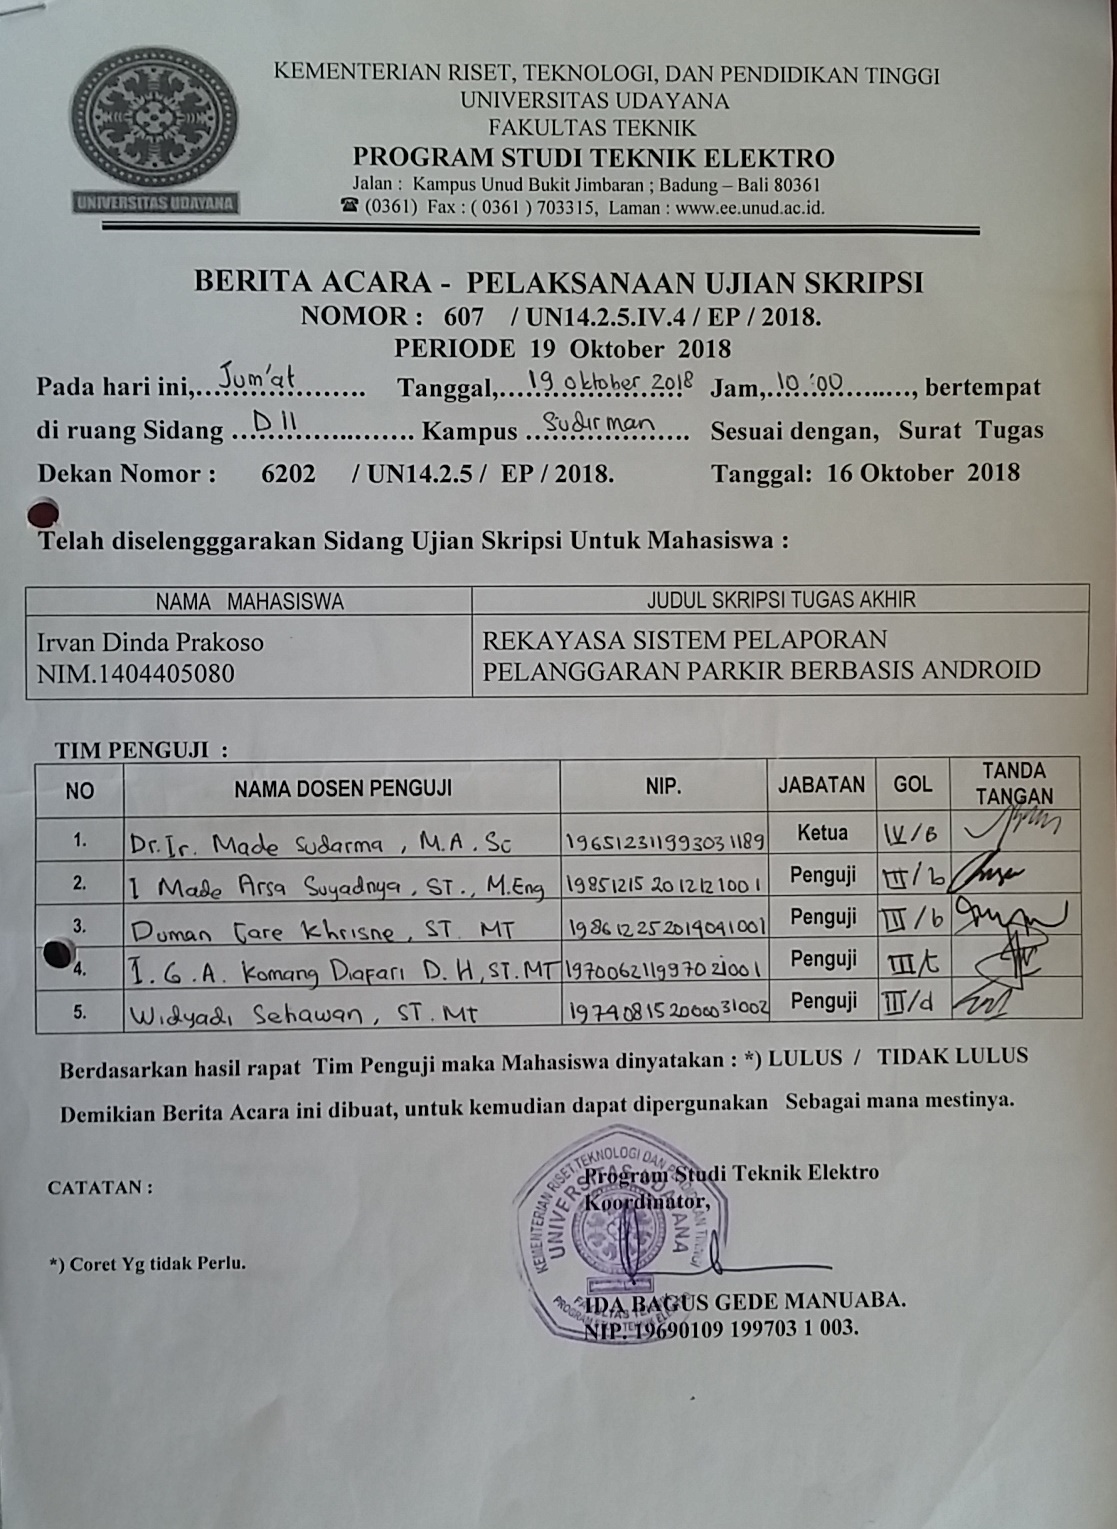 UNIVERSITAS UDAYANA
KEMENTERIAN RISET, TEKNOLOGI, DAN PENDIDIKAN TINGGI
UNIVERSITAS UDAYANA
FAKULTAS TEKNIK
PROGRAM STUDI TEKNIK ELEKTRO
Jalan : Kampus Unud Bukit Jimbaran ; Badung – Bali 80361
☎ (0361) Fax : ( 0361 ) 703315, Laman : www.ee.unud.ac.id.
BERITA ACARA - PELAKSANAAN UJIAN SKRIPSI
NOMOR : 607 / UN14.2.5.IV.4 / EP / 2018.
PERIODE 19 Oktober 2018
Pada hari ini, Jum'at Tanggal, 19 oktober 2018 Jam, 10:00, bertempat
di ruang Sidang D II Kampus Sudirman Sesuai dengan, Surat Tugas
Dekan Nomor : 6202 / UN14.2.5 / EP / 2018. Tanggal: 16 Oktober 2018
Telah diselengggarakan Sidang Ujian Skripsi Untuk Mahasiswa :
NAMA MAHASISWA JUDUL SKRIPSI TUGAS AKHIR
Irvan Dinda Prakoso REKAYASA SISTEM PELAPORAN
NIM.1404405080 PELANGGARAN PARKIR BERBASIS ANDROID
TIM PENGUJI :
NO NAMA DOSEN PENGUJI NIP. JABATAN GOL TANDA TANGAN
1. Dr. Ir. Made Sudarma, M.A.Sc 196512311993031189 Ketua IV/B
2. I Made Arsa Suyadnya, ST., M.Eng 198512152012121001 Penguji III/b
3. Duman Care Khrisne, ST. MT 198612252019041001 Penguji III/b
4. I.G.A. Komang Diafari D.H, ST.MT 197006211997021001 Penguji
5. Widyadi Setiawan, ST. MT 197908152000031002 Penguji III/d
Berdasarkan hasil rapat Tim Penguji maka Mahasiswa dinyatakan : *) LULUS / TIDAK LULUS
Demikian Berita Acara ini dibuat, untuk kemudian dapat dipergunakan Sebagai mana mestinya.
CATATAN :
Program Studi Teknik Elektro
Koordinator,
KEMENTERIAN RISET, TEKNOLOGI DAN PENDIDIKAN TINGGI
UNIVERSITAS UDAYANA
*) Coret Yg tidak Perlu.
IDA BAGUS GEDE MANUABA.
NIP. 19690109 199703 1 003.